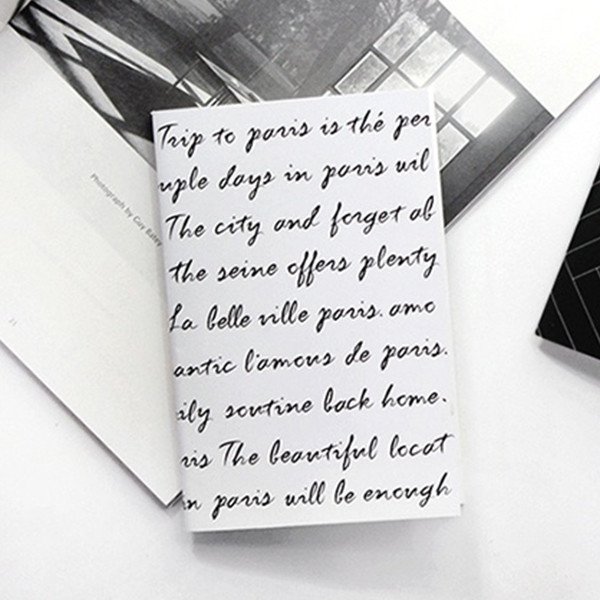 Trip to paris is thé per
uple days in paris wil
The city and forget ab
the seine offers plenty
La belle ville paris. amo
antic l'amous de paris.
ily soutine back home.
ris The beautiful locat
in paris will be enough
Photograph by Cov Batey